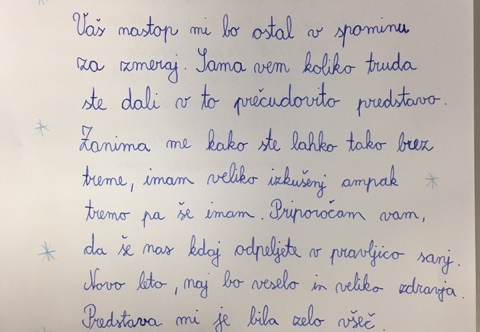 Vaš nastop mi bo ostal v spominu
za izmeraj. Sama vem koliko truda
ste dali v to prečudovito predstavo.
Zanima me kako ste lahko tako brez
treme, imam veliko izkušenj ampak
tremo pa še imam. Priporočam vam,
da še nas kdaj odpeljete v pravljico sanj.
Novo leto, naj bo veselo in veliko zdravja.
Predstava mi je bila zelo všeč.